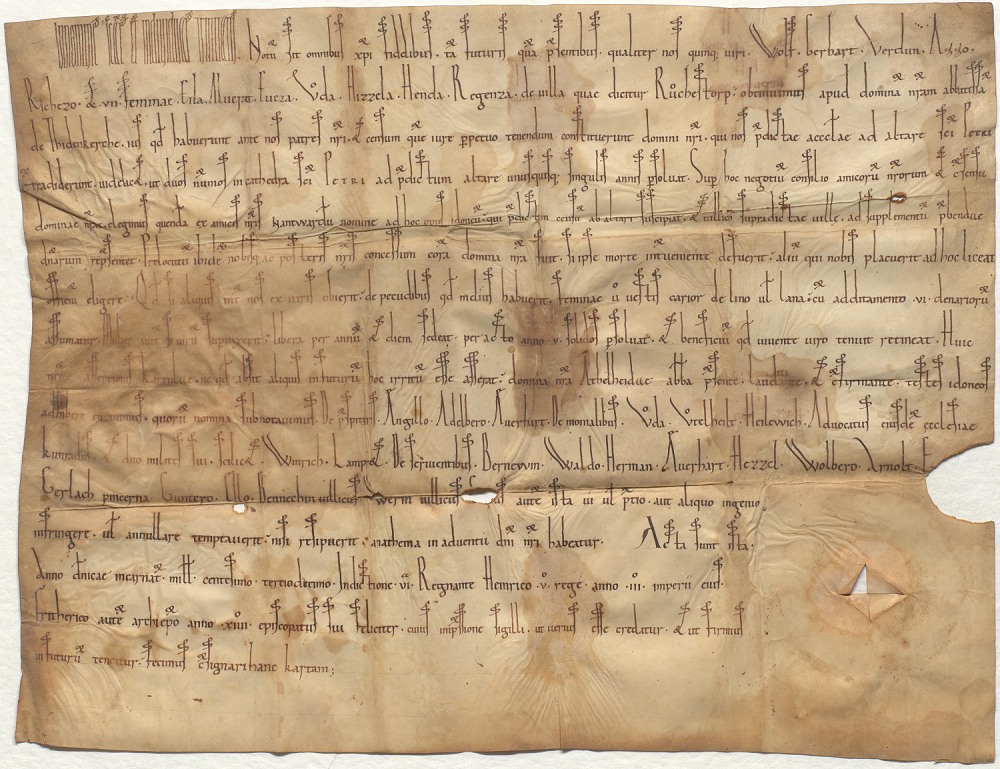 Notū sit omnibus xpi fidelibus tā futuris quā psentibus. qualiter nos quinq; viri. Wolf. berhart. Verdun. Azzo.
Richezo. & vii. feminae. Eila. Auerat. Lieza. Vᵒda. Hizzela. Henda. Regenza. de villa quae dicitur Rᵒuchestorp. obtinuimus apud dominā nr̄am abbatissā
de Thidenkirche. ius qd habuerunt ante nos patres nr̄i. & censum que iure ppetuo tenendum constituerunt domini nr̄i. qui nos pdictae aecclae ad altare sci Petri
tradiderunt. videlicet. ut duos nūmos in cathedra sci Petri ad pdictum altare unusquisq; singulis annis psoluat. Sup hoc negotiū consilio amicorū nr̄orum & csensu
dominae nr̄ae. elegimus quendā ex amicis nr̄is nantwardū nomine ad hoc opus idoneū. qui censū ab altari suscipiat. & villico supradictae ville. ad supplementū pbendae
dnarum repsentet. Prelocuti ibidē nobisq; ac posteris nr̄is concessum corā domina nr̄a fuit. si ipse morte interueniente defuerit. aliū qui nobis placuerit ad hoc liceat
officiū eligere. Qd si aliquis int nos ex uiris obierit. de pecudibus qd melius habuerit. feminae ū uestis carior de lino ul lana. cū additamento vi denariorū
assumatur. Mulier aut si uiro supuixerit. libera per annū & diem sedeat. per acto anno. v. solidos psoluat. & beneficiū qd uiuente uiro tenuit retineat. Huic
assertionis kartulae. ne qd absit aliquis in futurū hoc irritū esse asserat. domina nr̄a Athelheidae abba psente. laudante. & cfirmante. testes idoneos
adhibere curauimus. quorū nomina subnotauimus. De pspitis Angillo. Adelbero. Auerhart. De monialibus. Vᵒda. Vᵒtelheit. Heilewich. Aduocatus eiusdē ecclesiae
kunradus. & duo milites sui. scilic&. Winrich. Lampr&. De seruientibus. Bernewin. Waldo. Herman. Auerhart. Hezzel. Wolbero. Arnolt.
Gerlach pincerna. Guntero. Cillo. Benniechin uillicus. Werin uillicus aute ista ui ul ptio. aut aliquo ingenio
infringere. ul annullare temptauerit. nisi resipuerit. anathema in aduentū dni nr̄i habeatur. Acta sunt ista.
Anno dnicae incarnat. mill. centesimo. tertiodecimo. Indictione. vi. Regnante Heinrico. v. rege. anno. iii. imperii eius.
Fritherico aute archiepo anno. xiiii. episcopatus sui feliciter. cuius inpssione sigilli. ut uerius esse credatur. & ut firmius
in futurū teneatur. fecimus csignari hanc kartam;